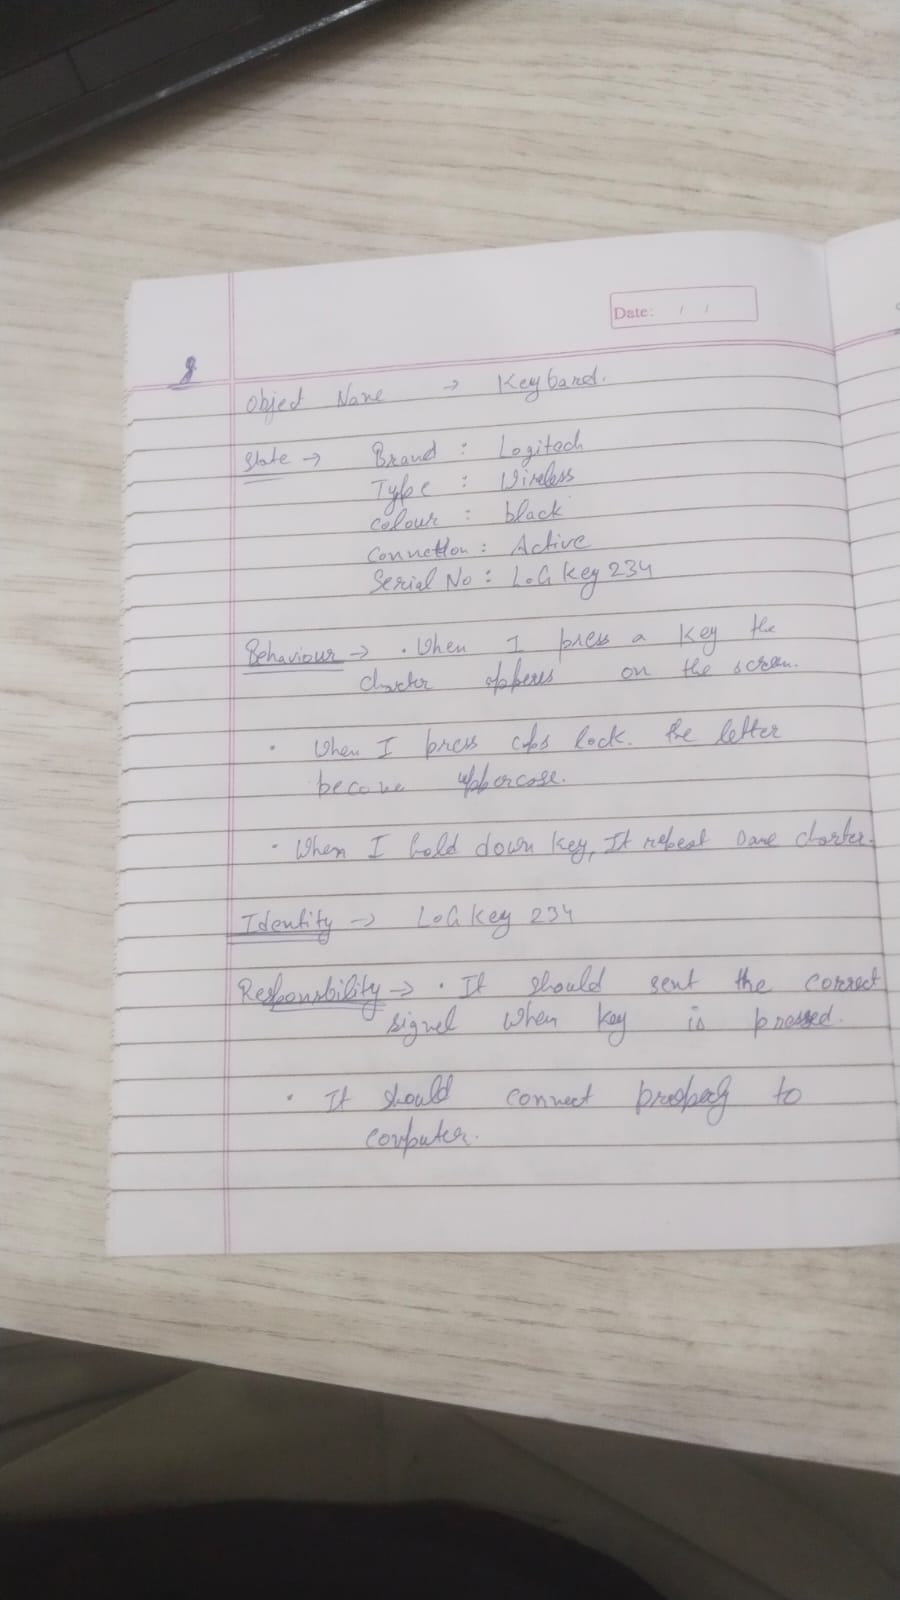 Date: / /
8
Object Name → Keyboard.
State → Brand : Logitech
Type : Wireless
Colour : black
Connettion : Active
Serial No : LOG Key 234
Behaviour → • When I press a key the
on the screen.
• When I press caps lock. the letter
become uppercase.
• When I hold down key, It repeat same
Identity → LOG Key 234
Responsibility → • It should sent the correct
signel when key is pressed.
• It should connect to
computer.